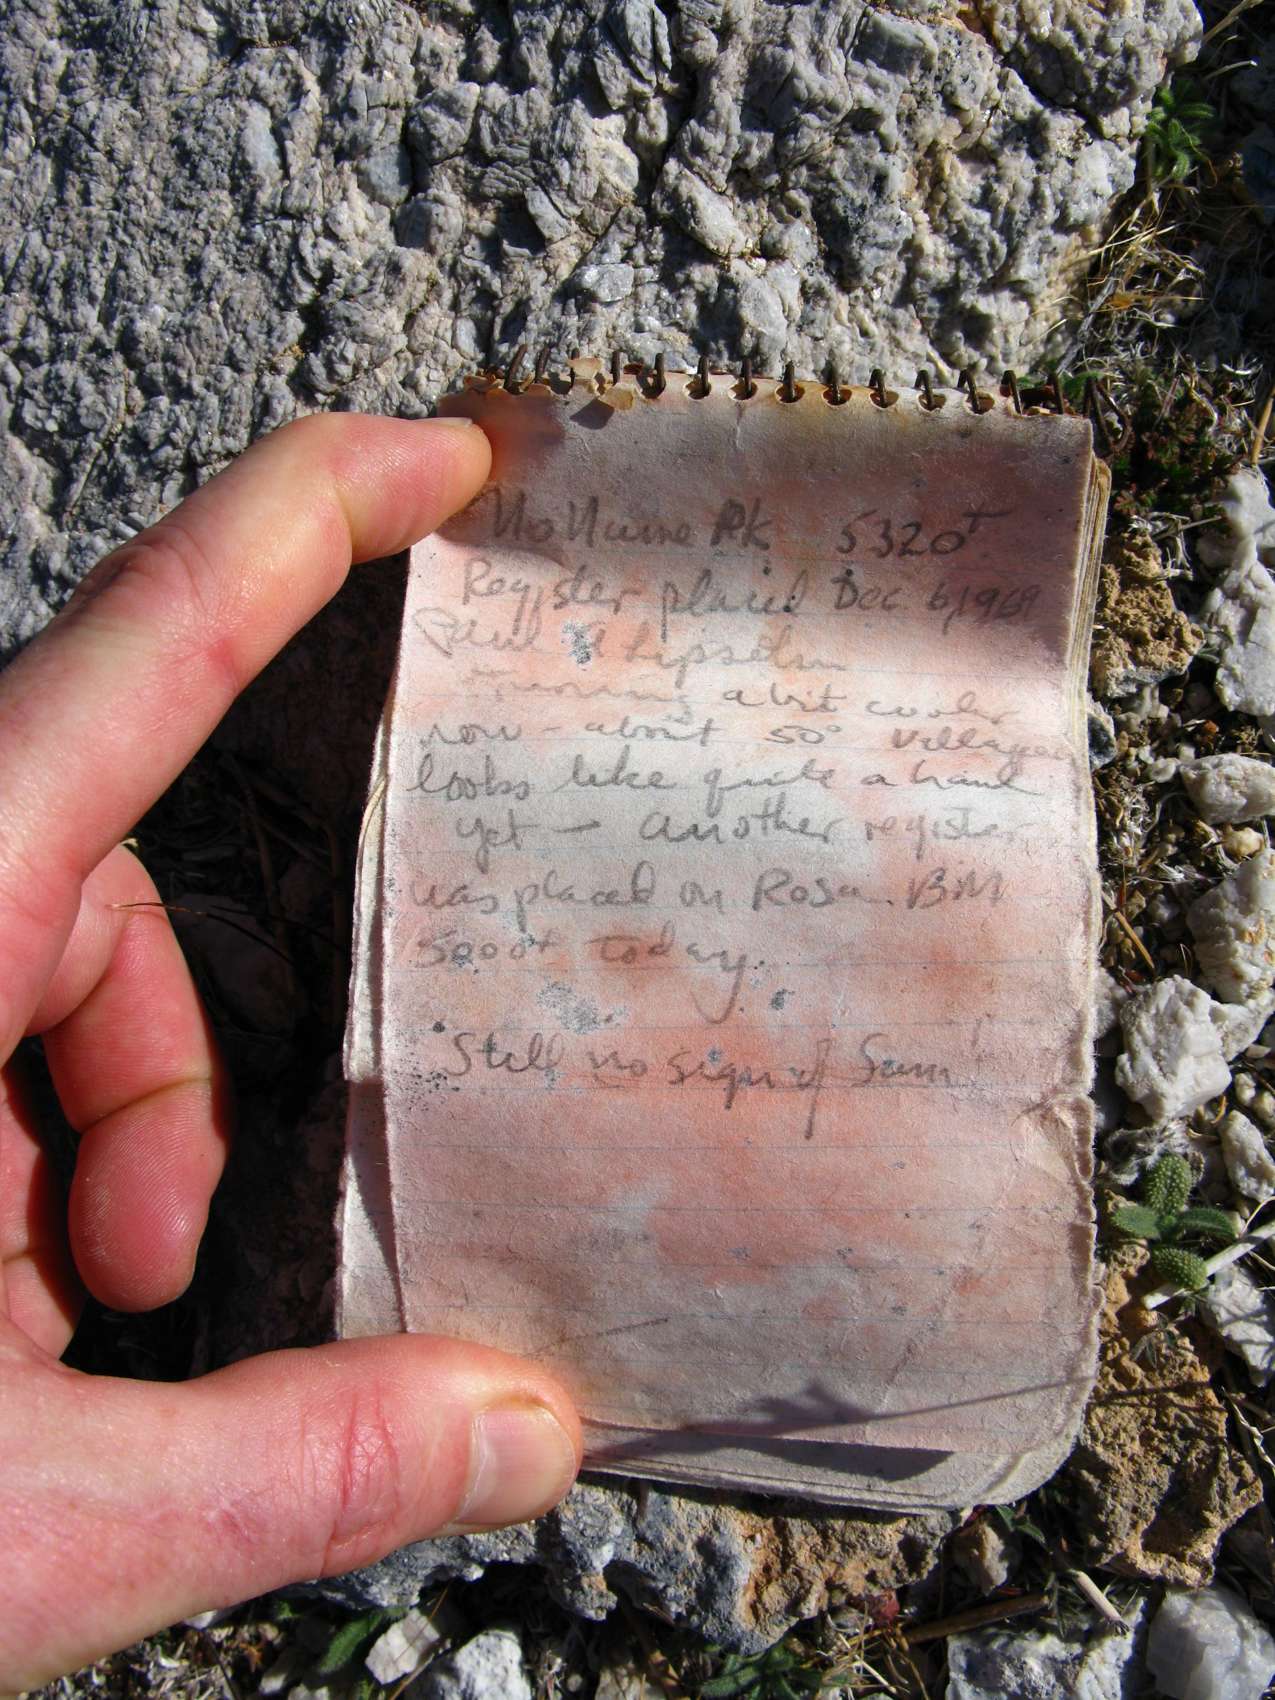 No Name Pk 5320+
Register placed Dec 6, 1969
Paul Lipsohn
Turning a bit cooler
now - about 50° Villager
looks like quite a haul
yet - another register
was placed on Rosa BM
5000+ today.
Still no sign of Sam